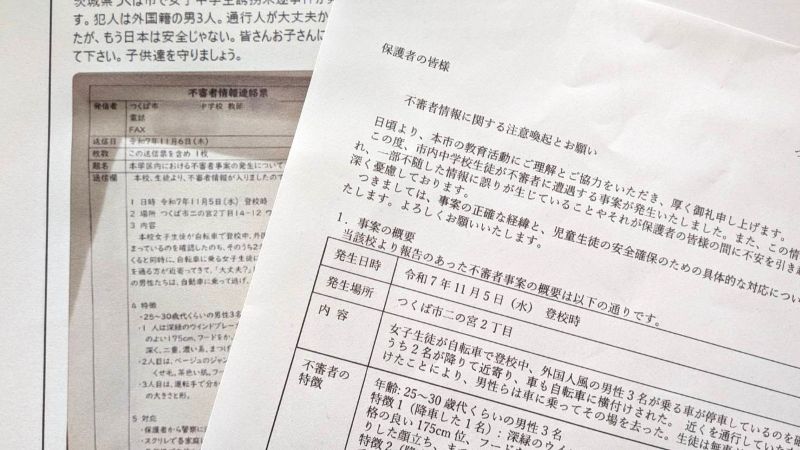 茨城県つくば市で女子中学生誘拐未遂事件が
す。犯人は外国籍の男3人。通行人が大丈夫か
たが、もう日本は安全じゃない。皆さんお子さんに
て下さい。子供達を守りましょう。
不審者情報連絡票
発信者 つくば市 中学校 教頭
電話
FAX
送信日 令和7年11月6日(木)
枚数 この送信票を含め 1枚
題名 本学区内における不審者事案の発生について
送信欄 本校、生徒より、不審者情報が入りましたので
1 日時 令和7年11月5日(水) 登校時
2 場所 つくば市二の宮2丁目14-12
3 内容
本校女子生徒が自転車で登校中、外国
まっているのを確認したのち、そのうち2
くると同時に、自転車に乗る女子生徒に
を通る方が近寄ってきて、「大丈夫?」
の男性たちは、自動車に乗って逃げ
4 特徴
・25~30歳代くらいの男性3名
・1人は深緑のウインドブレー
のよい175cm、フードをか
深く、二重、濃い系、まつげ
・2人目は、ベージュのジャン
くせ毛。茶色い肌。フー
・3人目は、運転手で分か
の大きさと形。
5 対応
・保護者から警察に
・スクリレで各家庭
保護者の皆様
不審者情報に関する注意喚起とお願い
日頃より、本市の教育活動にご理解とご協力をいただき、厚く御礼申し上げます。
この度、市内中学校生徒が不審者に遭遇する事案が発生いたしました。また、この情
れ、一部不随した情報に誤りが生じていることやそれが保護者の皆様の間に不安を引き起
深く憂慮しております。
つきましては、事案の正確な経緯と、児童生徒の安全確保のための具体的な対応につい
たします。よろしくお願いいたします。
1.事案の概要
当該校より報告のあった不審者事案の概要は以下の通りです。
発生日時 令和7年11月5日(水) 登校時
発生場所 つくば市二の宮2丁目
内容 女子生徒が自転車で登校中、外国人風の男性3名が乗る車が停車しているのを確
うち2名が降りて近寄り、車も自転車に横付けされた。近くを通行していた方
けたことにより、男性らは車に乗ってその場を去った。生徒は無事
不審者の特徴 年齢:25~30歳代くらいの男性3名
特徴1(降車した1名):深緑のウイン
格の良い175cm位、フード
りした顔立ち、ま
特徴2(降